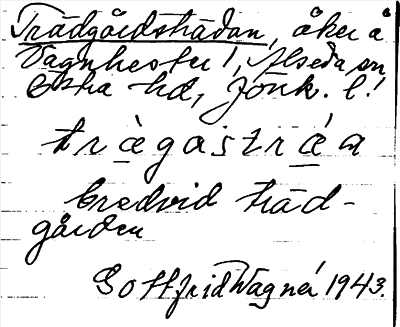 Trädgårdsträdan, åker å
Vagnhester!, Alseda sn
Östra hd, Jönk. l!
tràgastráa
bredvid träd-
gården
Gottfrid Wagnér 1943.